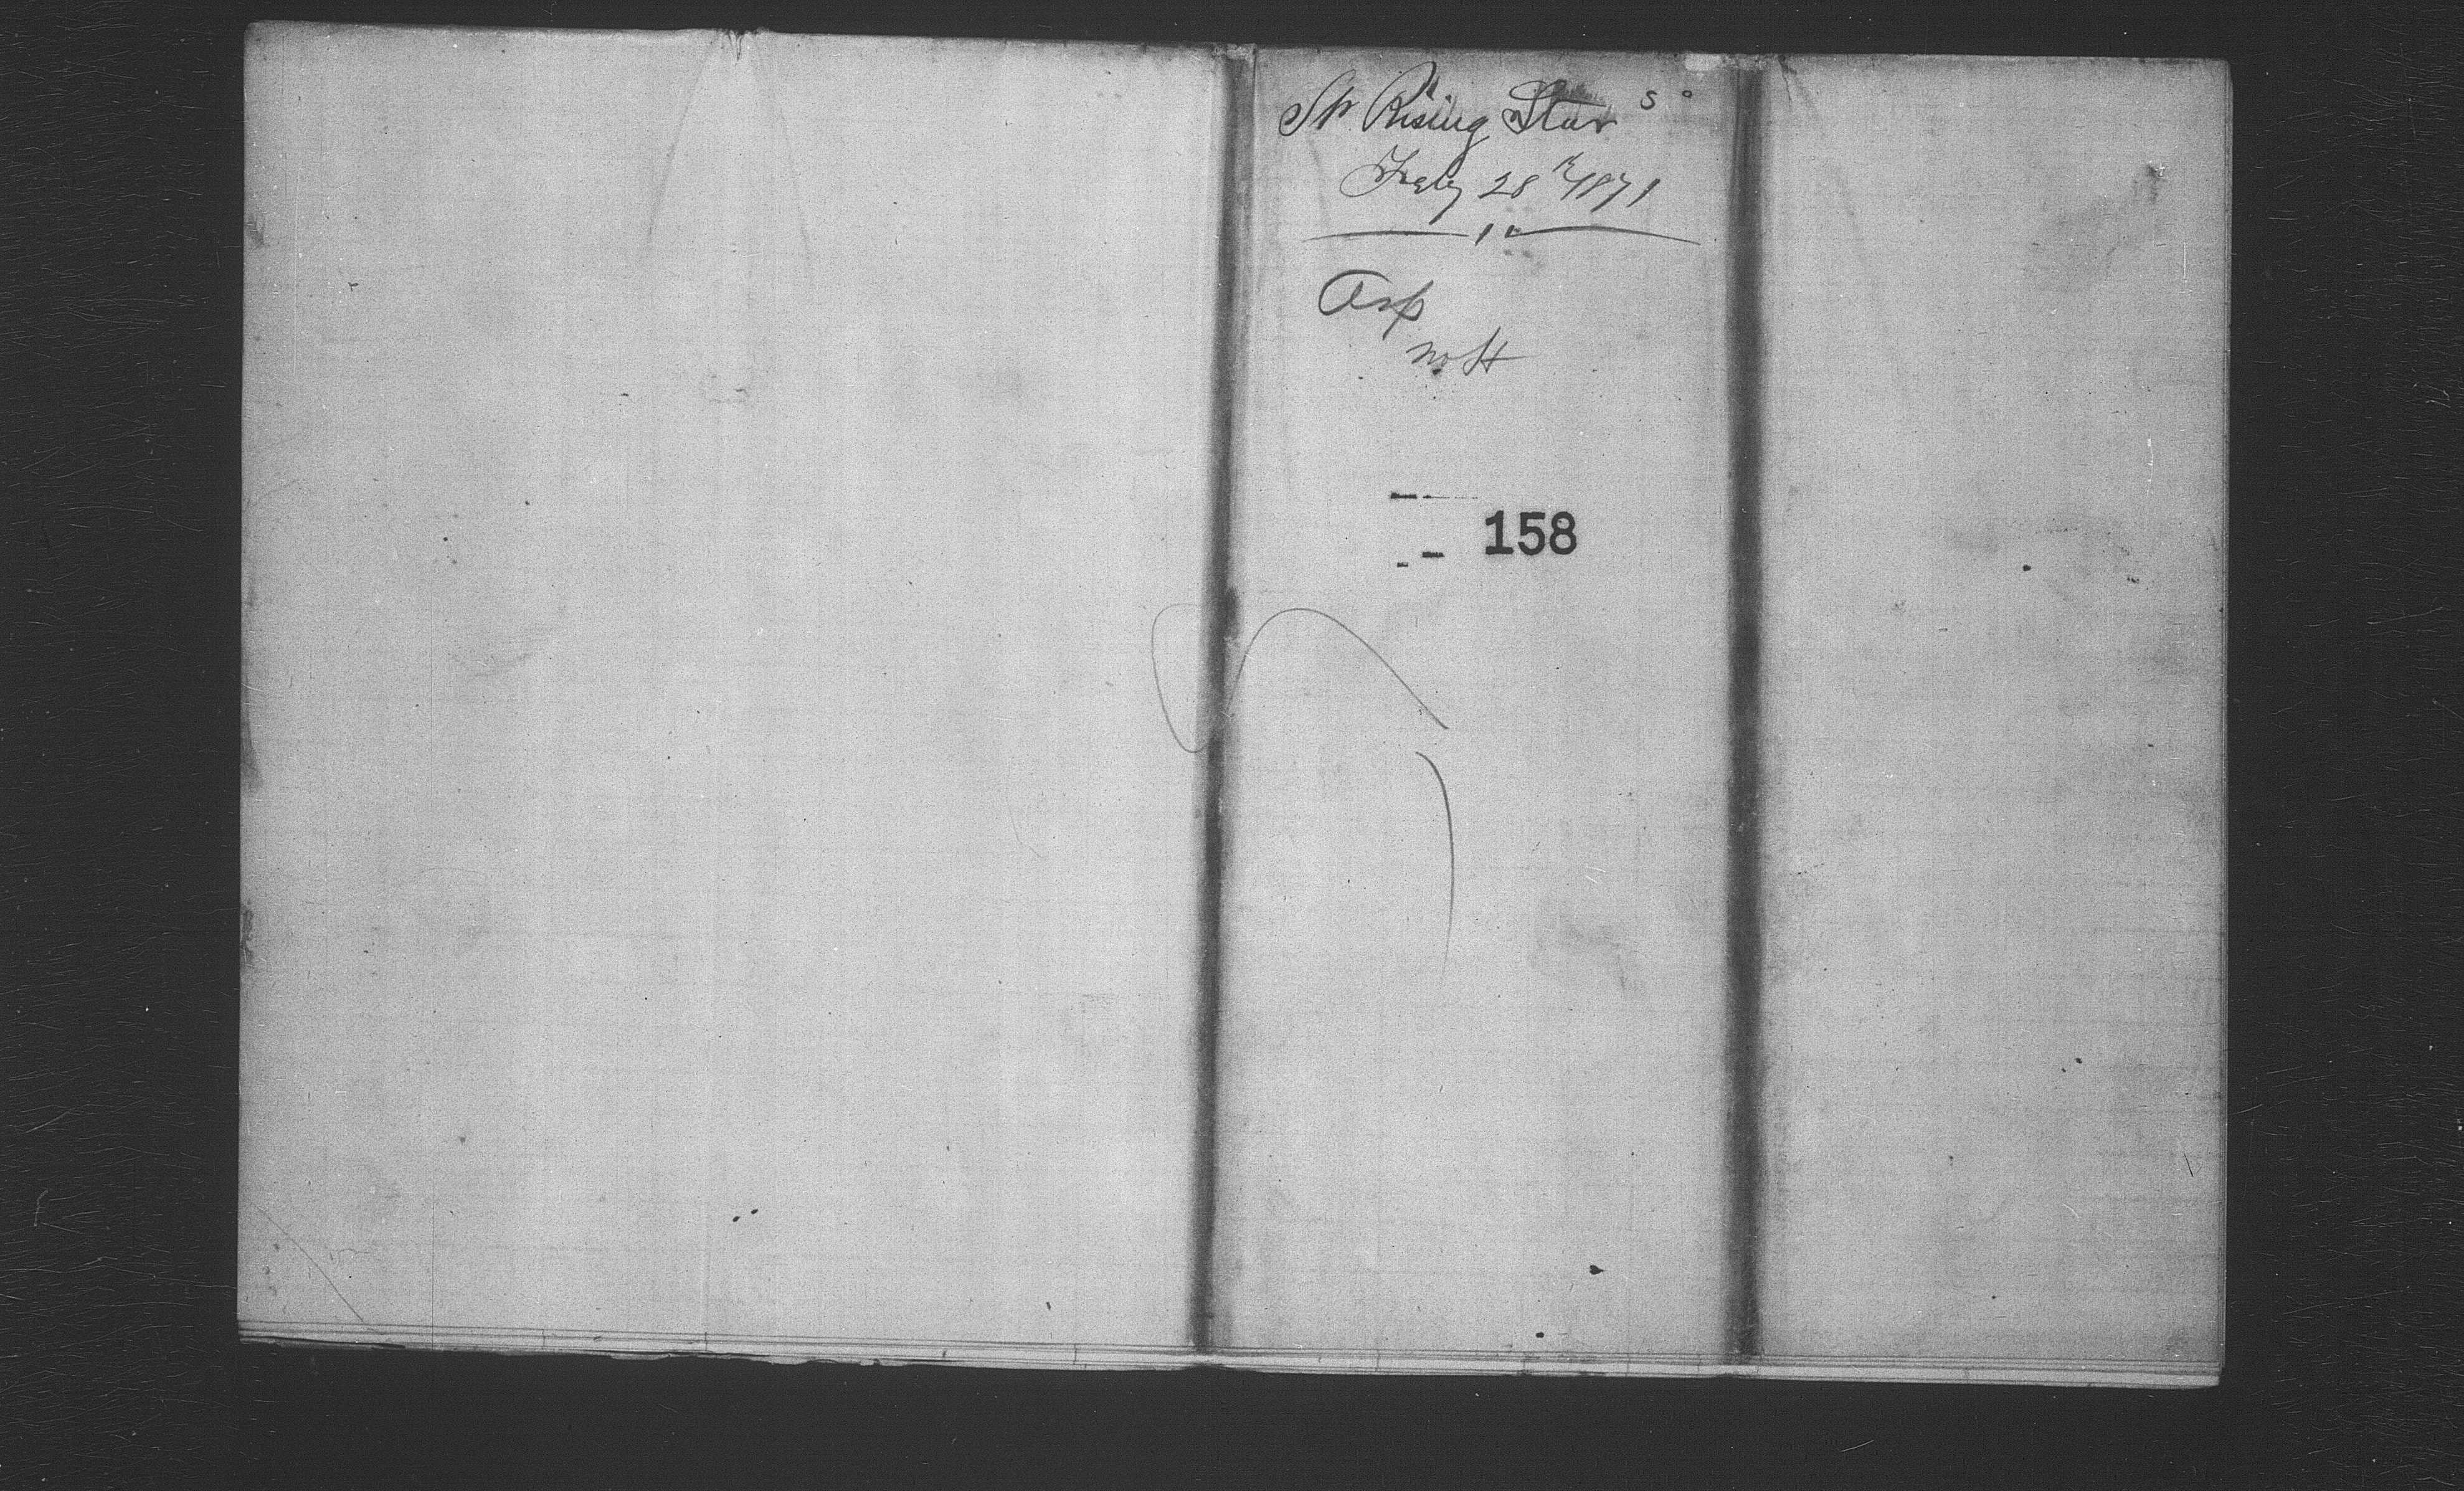 Str Rising Star
Feby 28th/1871
Asp
158